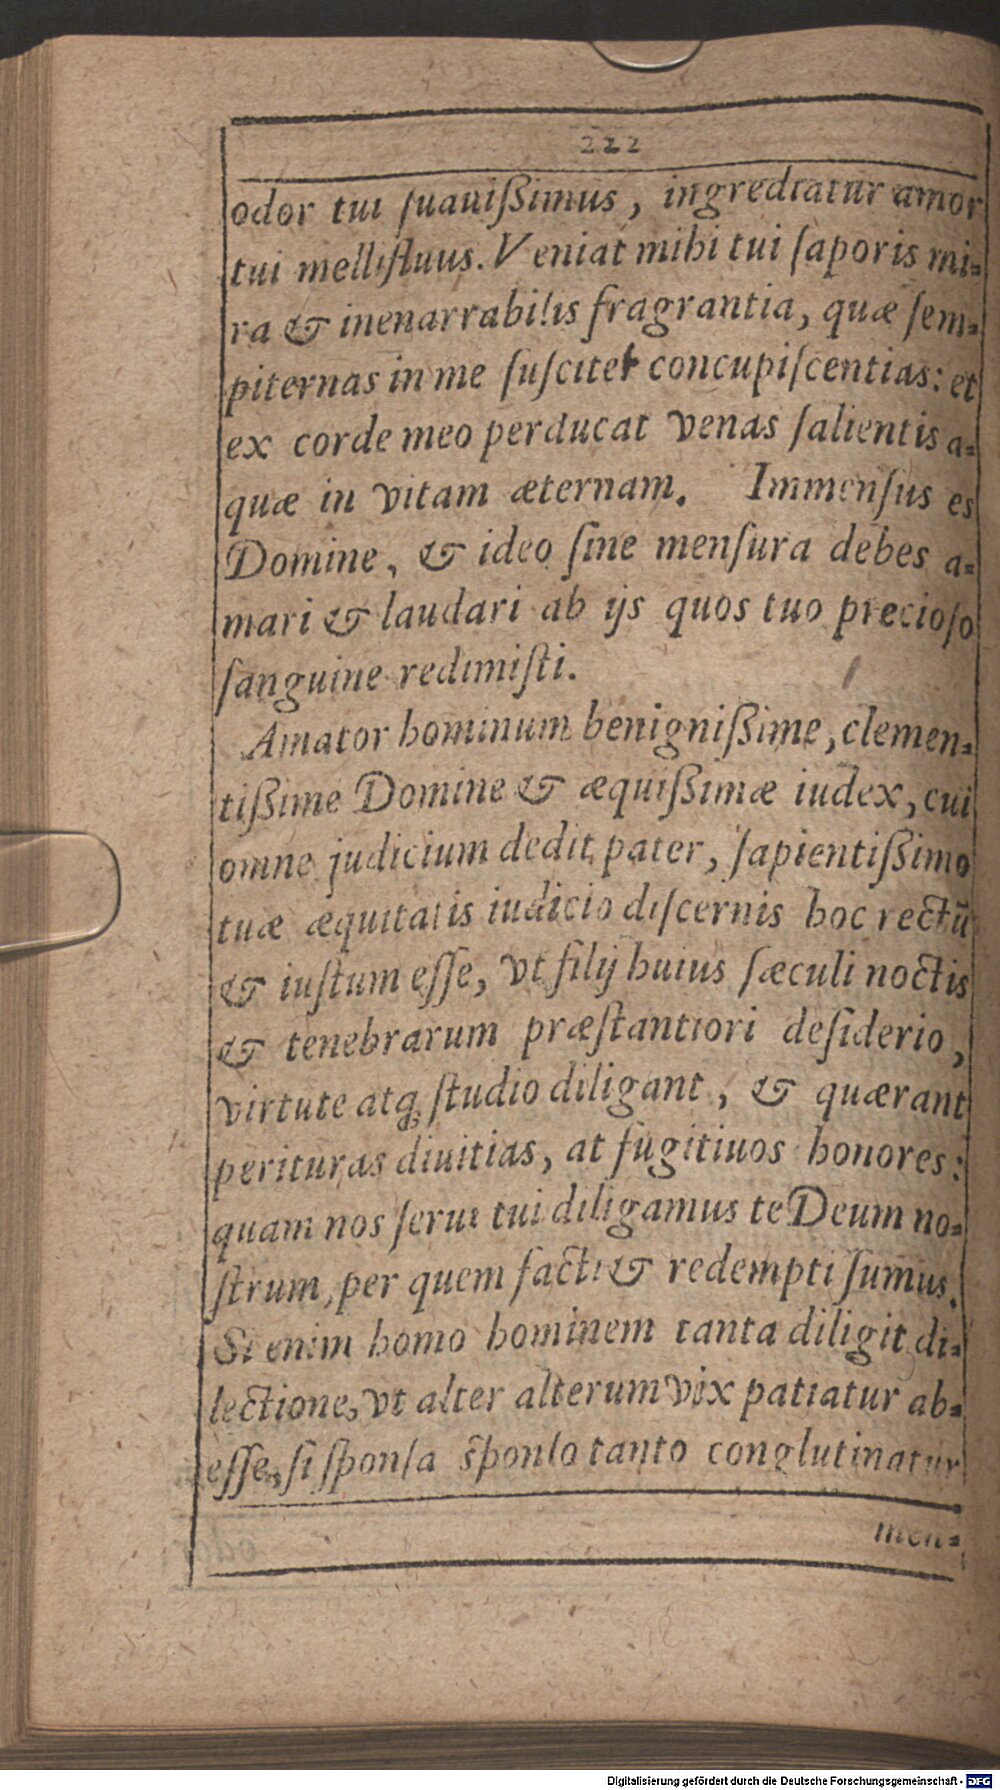 222
odor tui ſuauiſſimus, ingrediatur amor
tui mellifluus. Veniat mihi tui ſaporis mi-
ra & inenarrabilis fragrantia, quæ ſem-
piternas in me ſuſcitet concupiſcentias: et
ex corde meo perducat venas ſalientis a-
quæ in vitam æternam. Immenſus es
Domine, & ideo ſine menſura debes a-
mari & laudari ab ijs quos tuo precioſo
ſanguine redimiſti.
Amator hominum benigniſſime, clemen-
tiſſime Domine & æquiſſimæ iudex, cui
omne judicium dedit pater, ſapientiſſimo
tuæ æquitatis iudicio diſcernis hoc rectū
& iuſtum eſſe, vt filij huius ſæculi noctis
& tenebrarum præſtantiori deſiderio,
virtute atq; ſtudio diligant, & quærant
perituras diuitias, at fugitiuos honores:
quam nos ſerui tui diligamus te Deum no-
ſtrum, per quem facti & redempti ſumus.
Si enim homo hominem tanta diligit di-
lectione, vt alter alterum vix patiatur ab-
eſſe, ſi ſponſa ſponſo tanto conglutinatur
men-
Digitalisierung gefördert durch die Deutsche Forschungsgemeinschaft - DFG